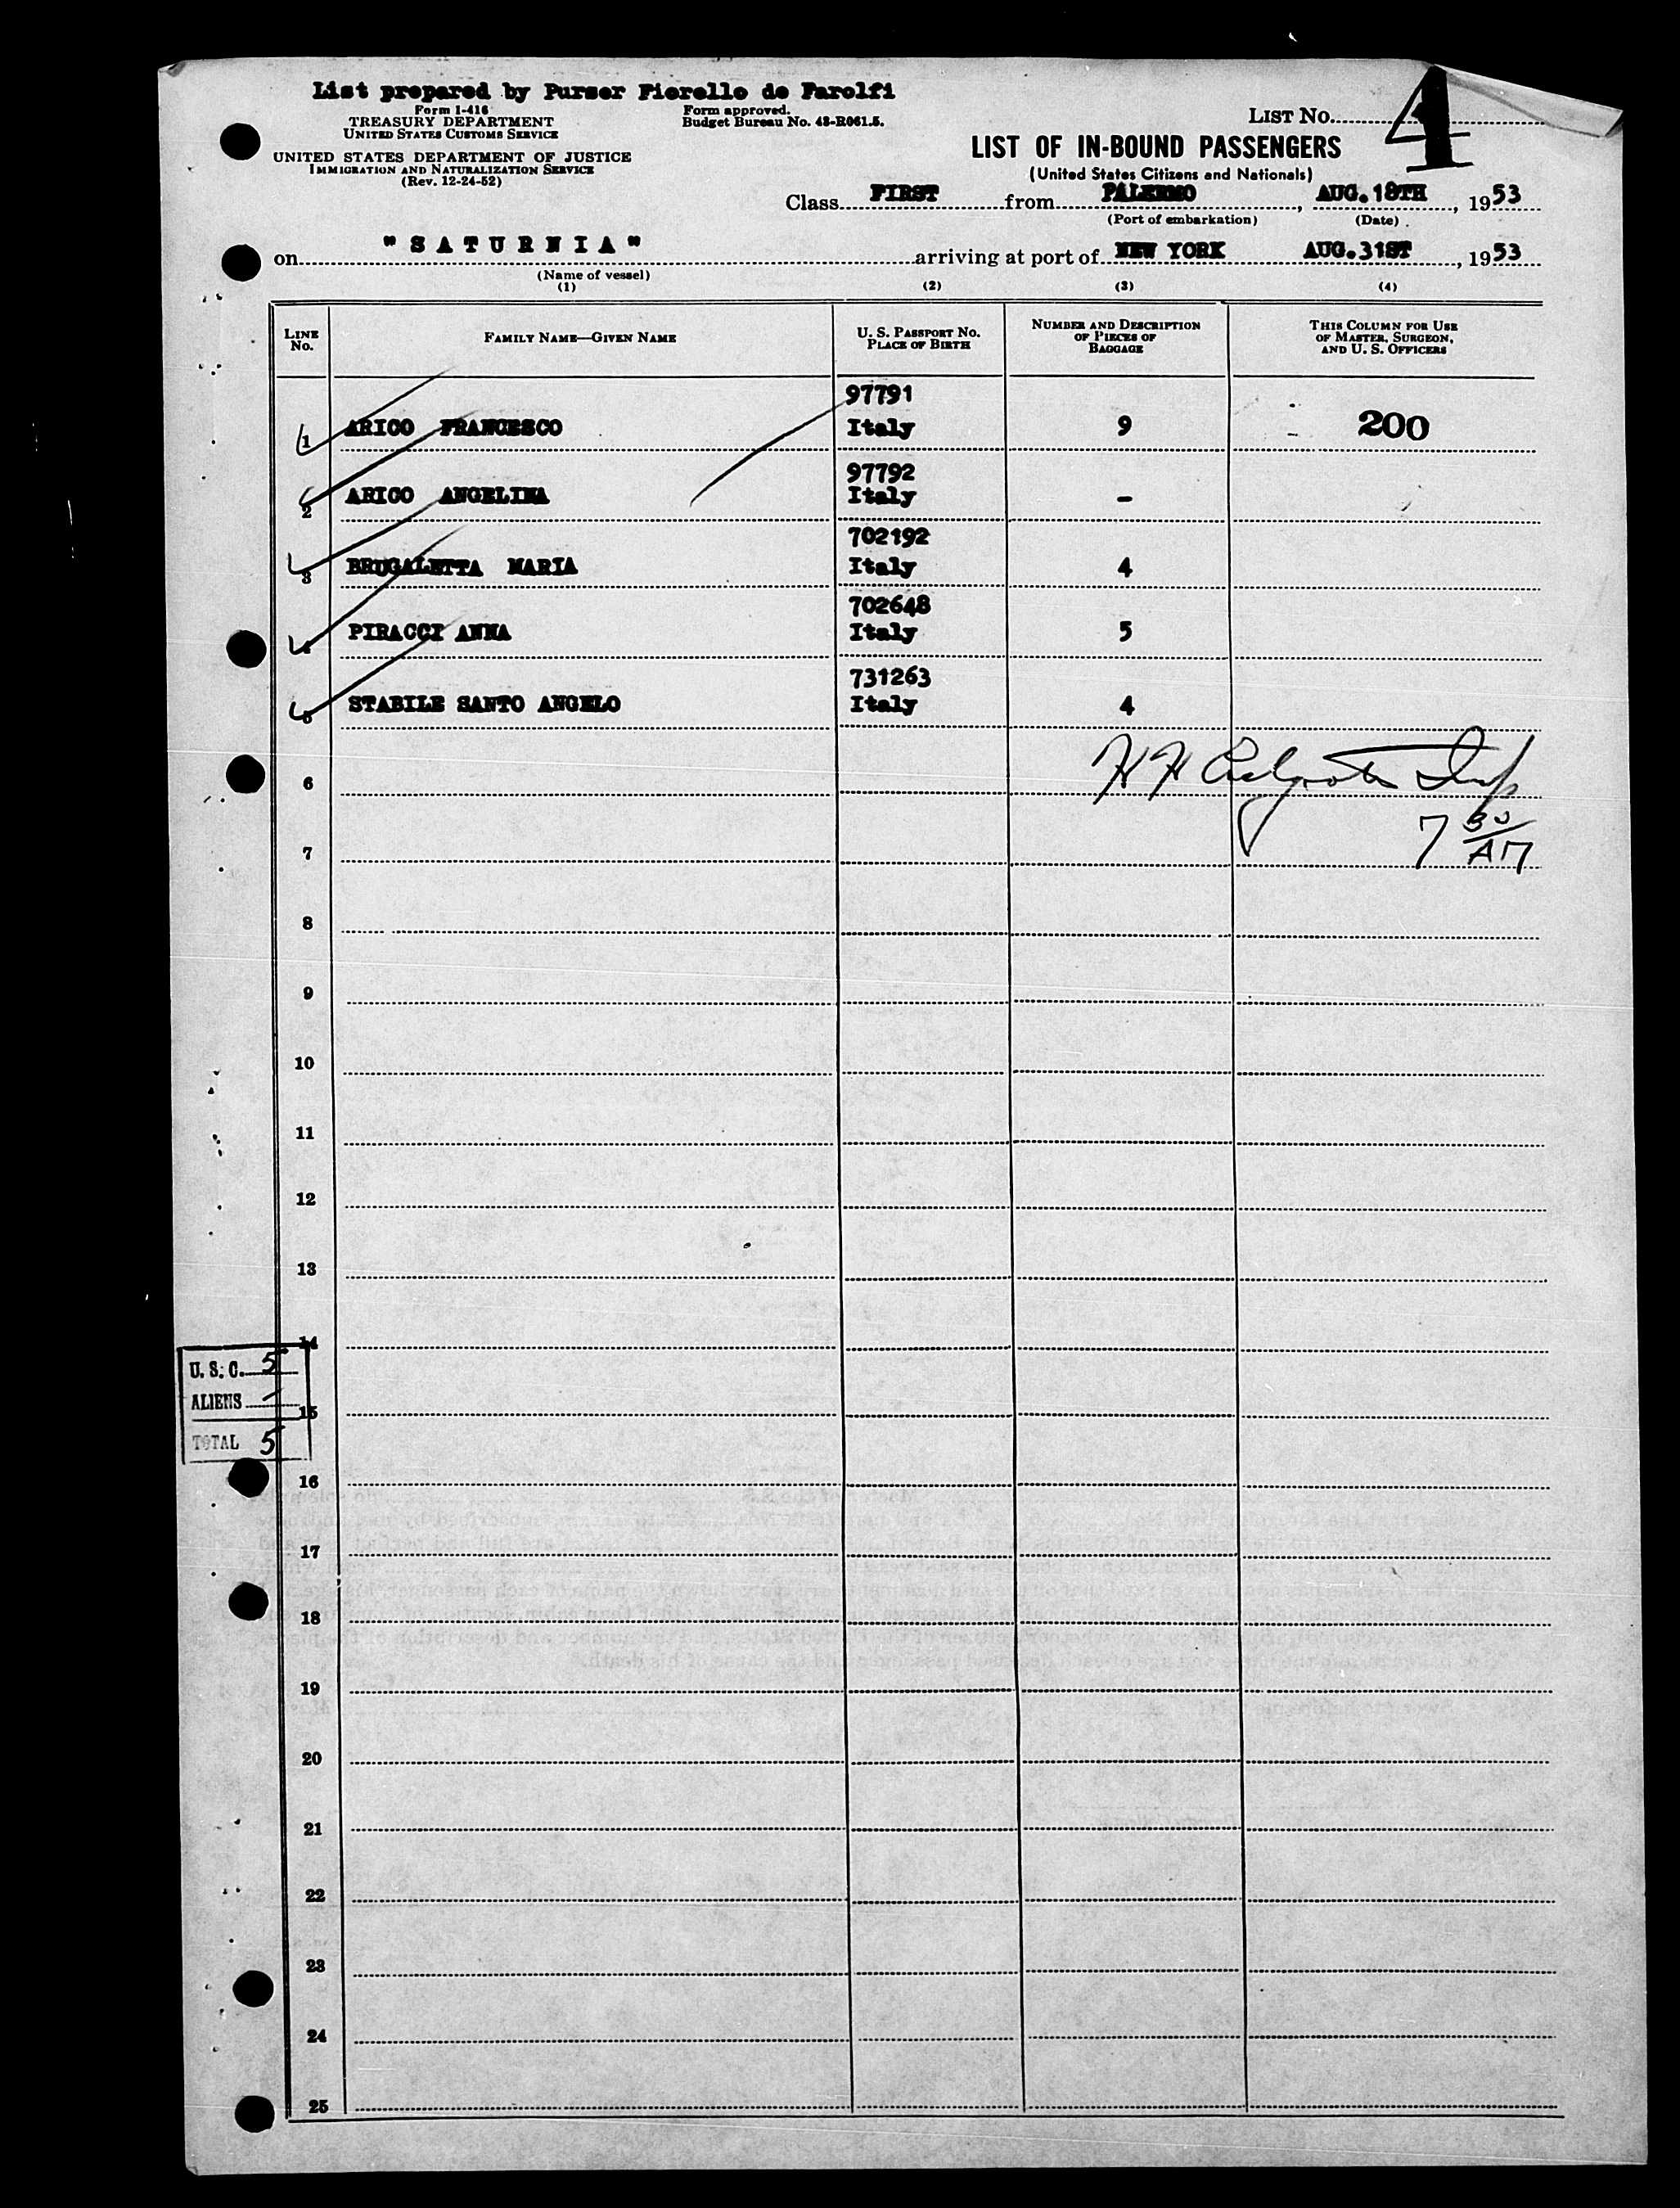 List prepared by Purser Fiorello de Farolfi
Form I-416
TREASURY DEPARTMENT
UNITED STATES CUSTOMS SERVICE
Form approved.
Budget Bureau No. 43-R061.5.
LIST No. 4
UNITED STATES DEPARTMENT OF JUSTICE
IMMIGRATION AND NATURALIZATION SERVICE
(Rev. 12-24-52)
LIST OF IN-BOUND PASSENGERS
(United States Citizens and Nationals)
Class FIRST from PALERMO, AUG. 18TH, 1953
(Port of embarkation) (Date)
on "SATURNIA" arriving at port of NEW YORK AUG. 31ST, 1953
(Name of vessel)
(1) (2) (3) (4)
LINE No. FAMILY NAME—GIVEN NAME U. S. PASSPORT No. PLACE OF BIRTH NUMBER AND DESCRIPTION OF PIECES OF BAGGAGE THIS COLUMN FOR USE OF MASTER, SURGEON, AND U. S. OFFICERS
97791
1 ARICO FRANCESCO Italy 9 200
97792
2 ARICO ANGELINA Italy -
702192
3 BRUGALETTA MARIA Italy 4
702648
4 PIRACCI ANNA Italy 5
731263
5 STABILE SANTO ANGELO Italy 4
6
7 7 30 AM
8
9
10
11
12
13
14
U. S. C. 5
ALIENS -
15
TOTAL 5
16
17
18
19
20
21
22
23
24
25